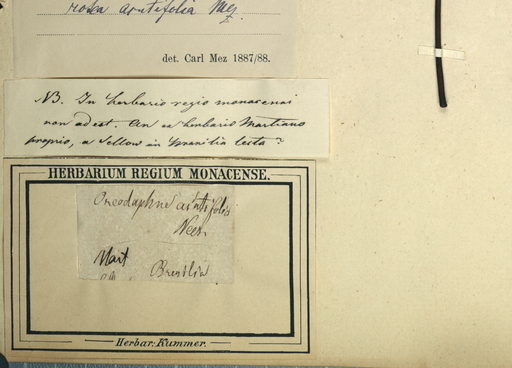 rosea acutifolia Mez
det. Carl Mez 1887/88.
NB. In herbario regio monacensi
non adest. An ex herbario Martiano
proprio, a Sellow in Brasilia lecta?
HERBARIUM REGIUM MONACENSE.
Oreodaphne acutifolia
Nees.
Mart
Brasilia
Herbar. Kummer.